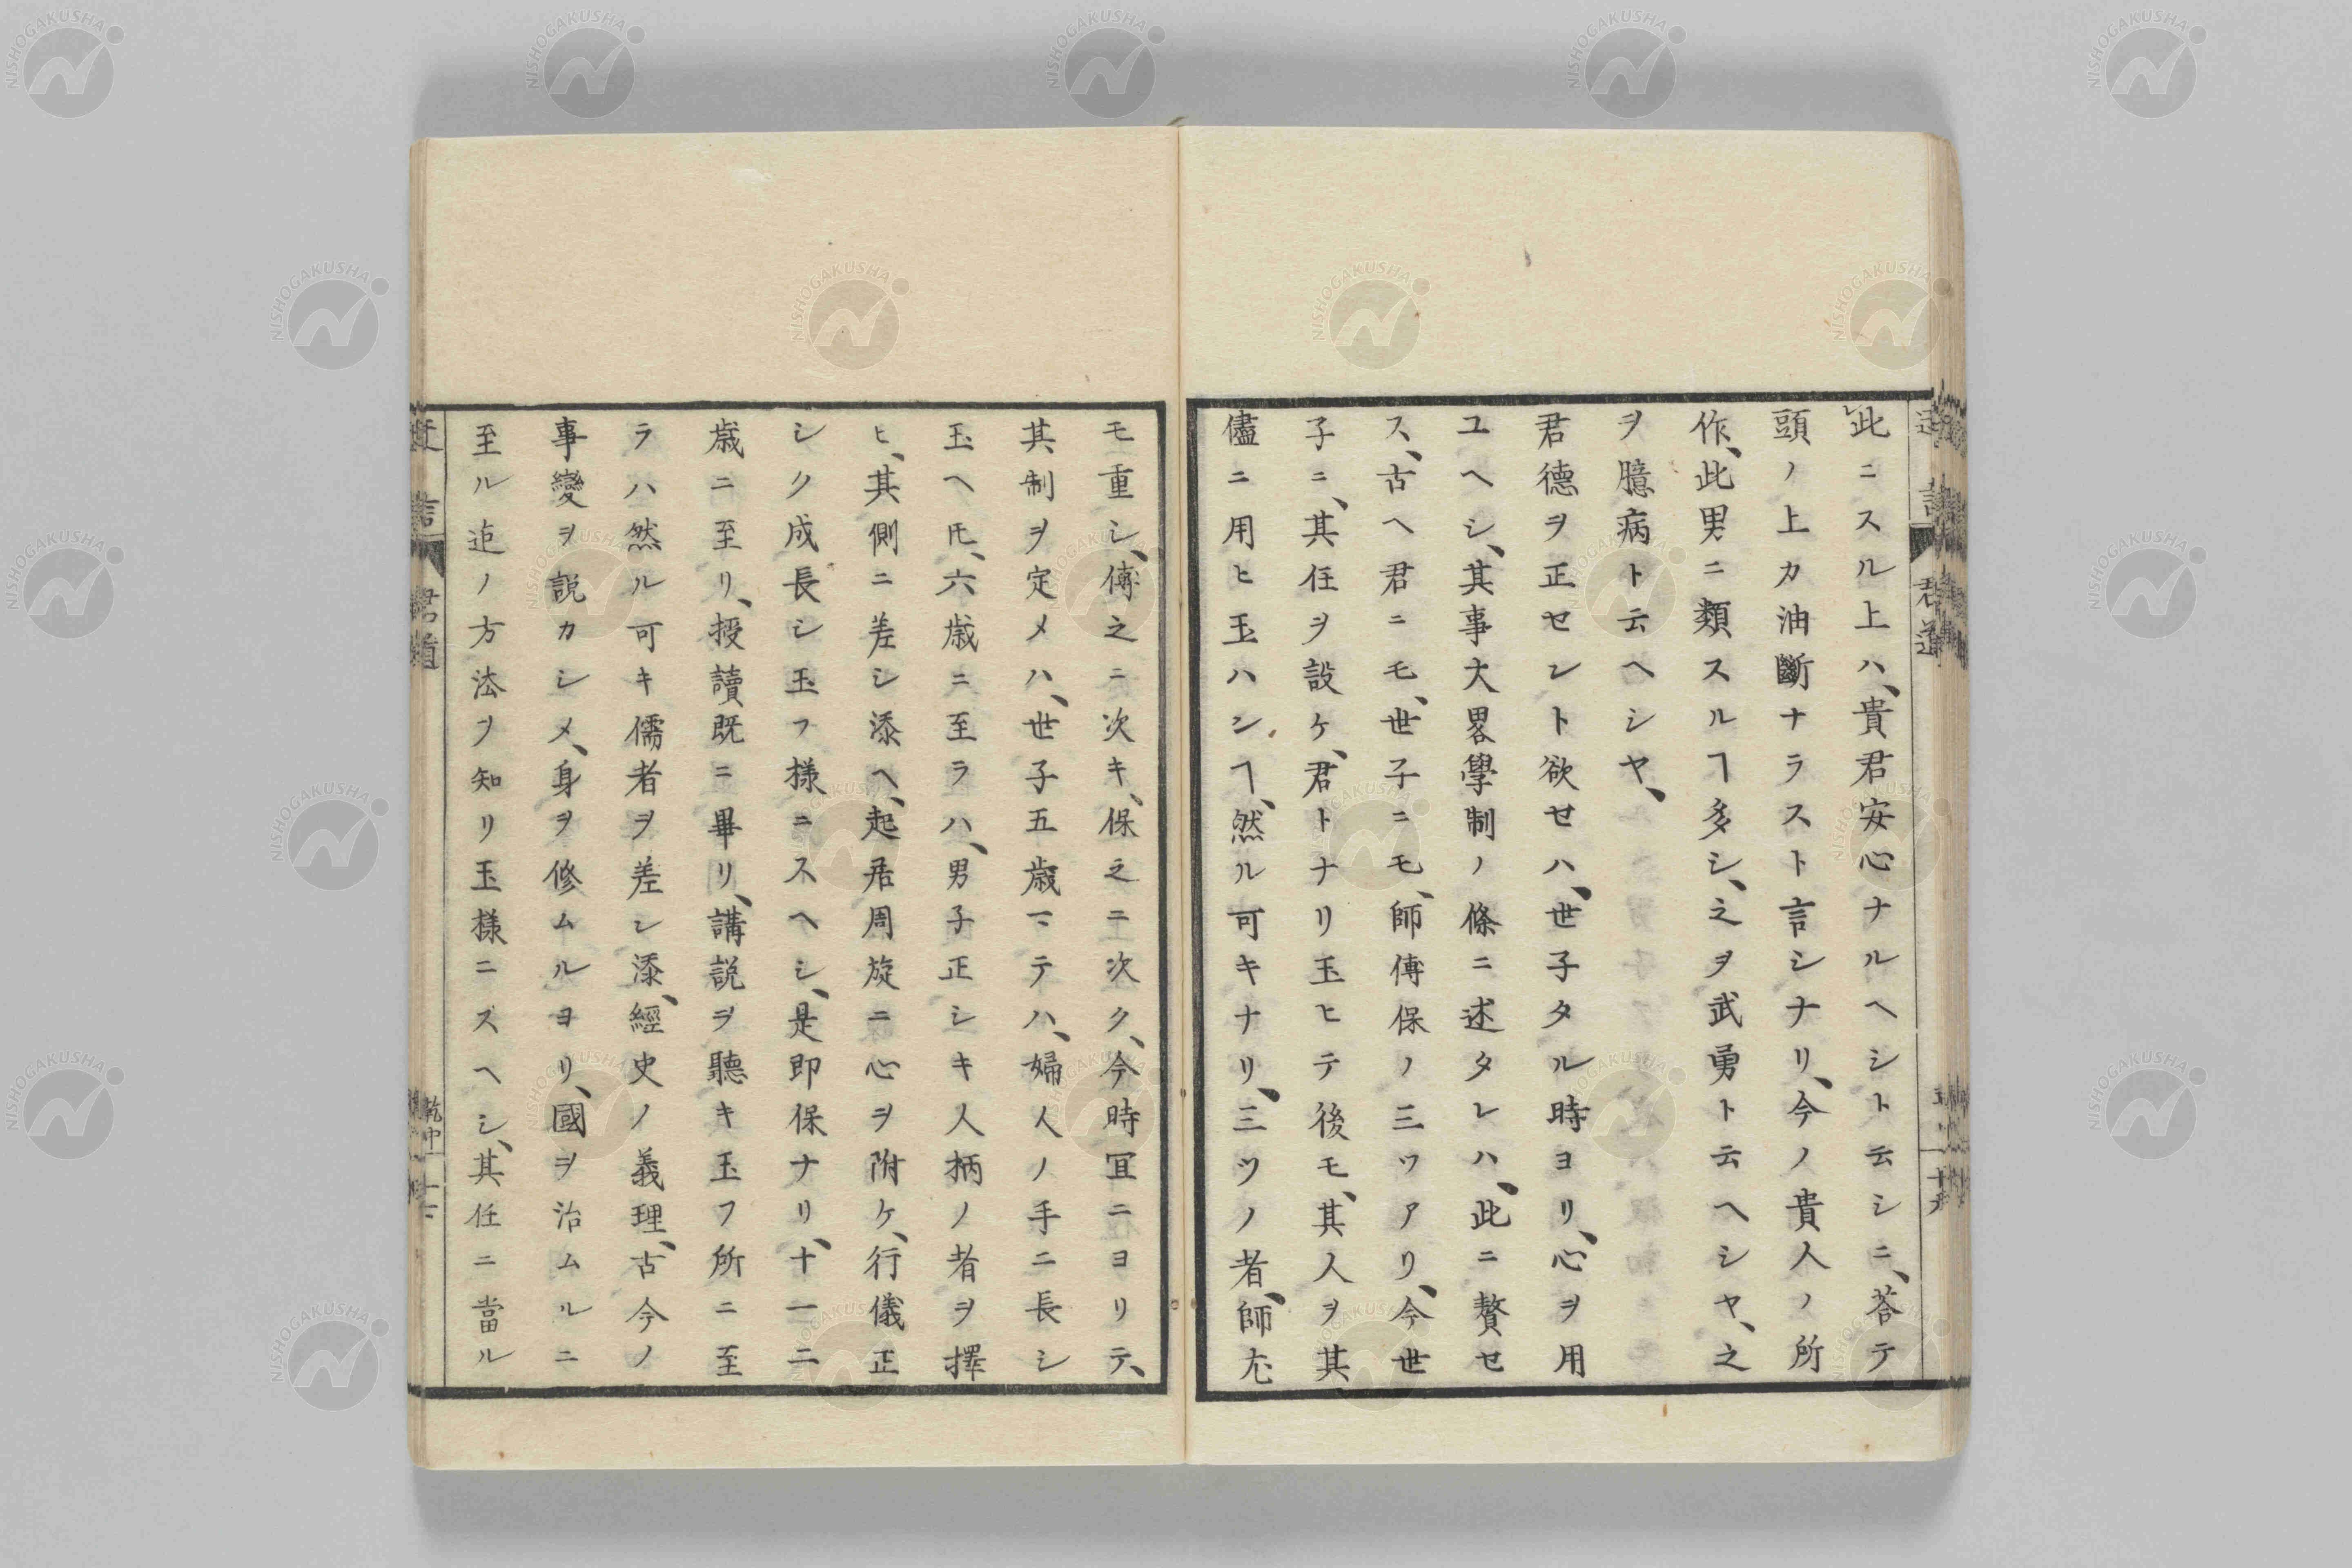 此ニスル上ハ、貴君安心ナルヘシト云シニ、荅テ
頭ノ上カ油斷ナラスト言シナリ、今ノ貴人ノ所
作、此男ニ類スルヿ多シ、之ヲ武勇ト云ヘシヤ、之
ヲ臆病ト云ヘシヤ、
君德ヲ正セント欲セハ、世子タル時ヨリ、心ヲ用
ユヘシ、其事大畧學制ノ條ニ述タレハ、此ニ贅セ
ス、古ヘ君ニモ、世子ニモ、師傅保ノ三ツアリ、今世
子ニ、其任ヲ設ケ、君トナリ玉ヒテ後モ、其人ヲ其
儘ニ用ヒ玉ハンヿ、然ル可キナリ、三ツノ者、師尤
モ重シ、傅之ニ次キ、保之ニ次ク、今時冝ニヨリテ、
其制ヲ定メハ、世子五歳マテハ、婦人ノ手ニ長シ
玉ヘ𪜈、六歳ニ至ラハ、男子正シキ人柄ノ者ヲ擇
ヒ、其側ニ差シ添ヘ、起居周旋ニ心ヲ附ケ、行儀正
シク成長シ玉フ様ニスヘシ、是即保ナリ、十一二
歳ニ至リ、授讀既ニ畢リ、講説ヲ聽キ玉フ所ニ至
ラハ然ル可キ儒者ヲ差シ添、經史ノ義理、古今ノ
事變ヲ説カシメ、身ヲ修ムルヨリ、國ヲ治ムルニ
至ル迄ノ方法ヲ知リ玉様ニスヘシ、其任ニ當ル
君道
NISHOGAKUSHA